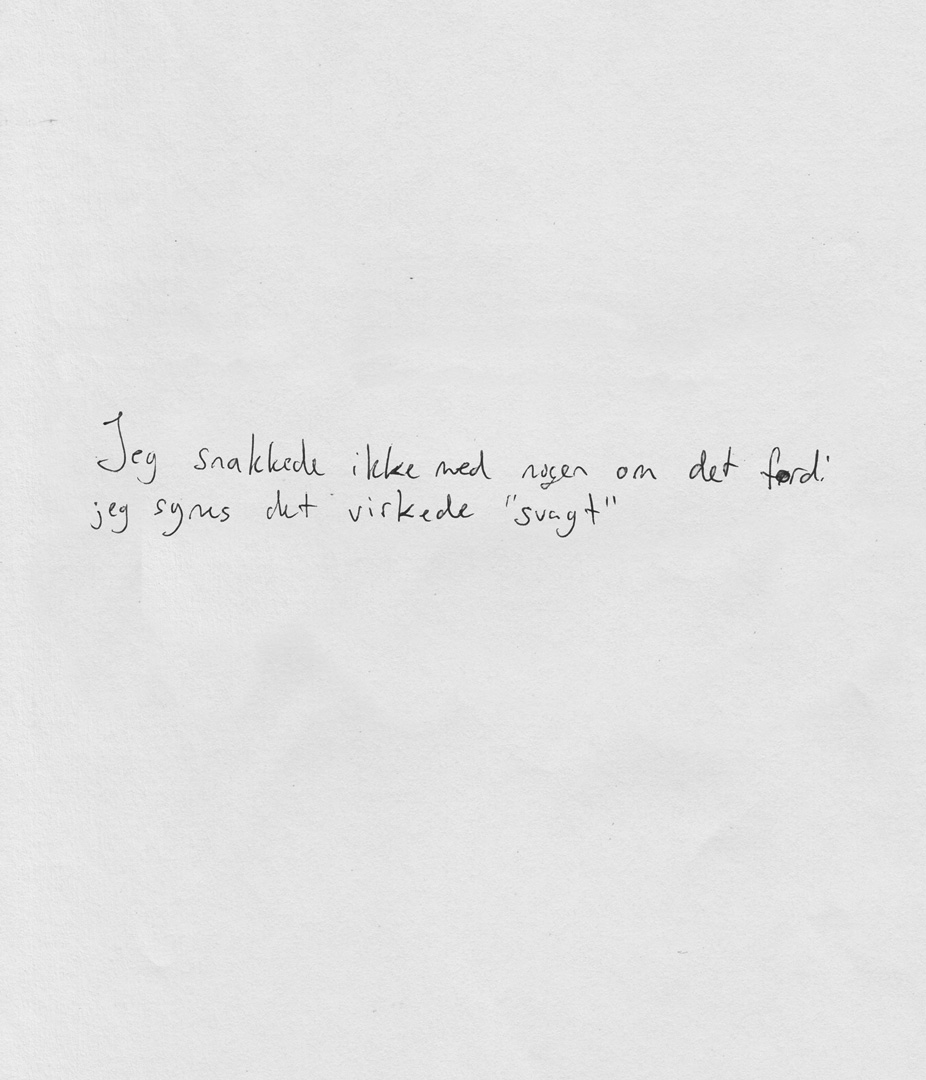 Jeg snakkede ikke med nogen om det fordi
jeg synes det virkede "svagt"